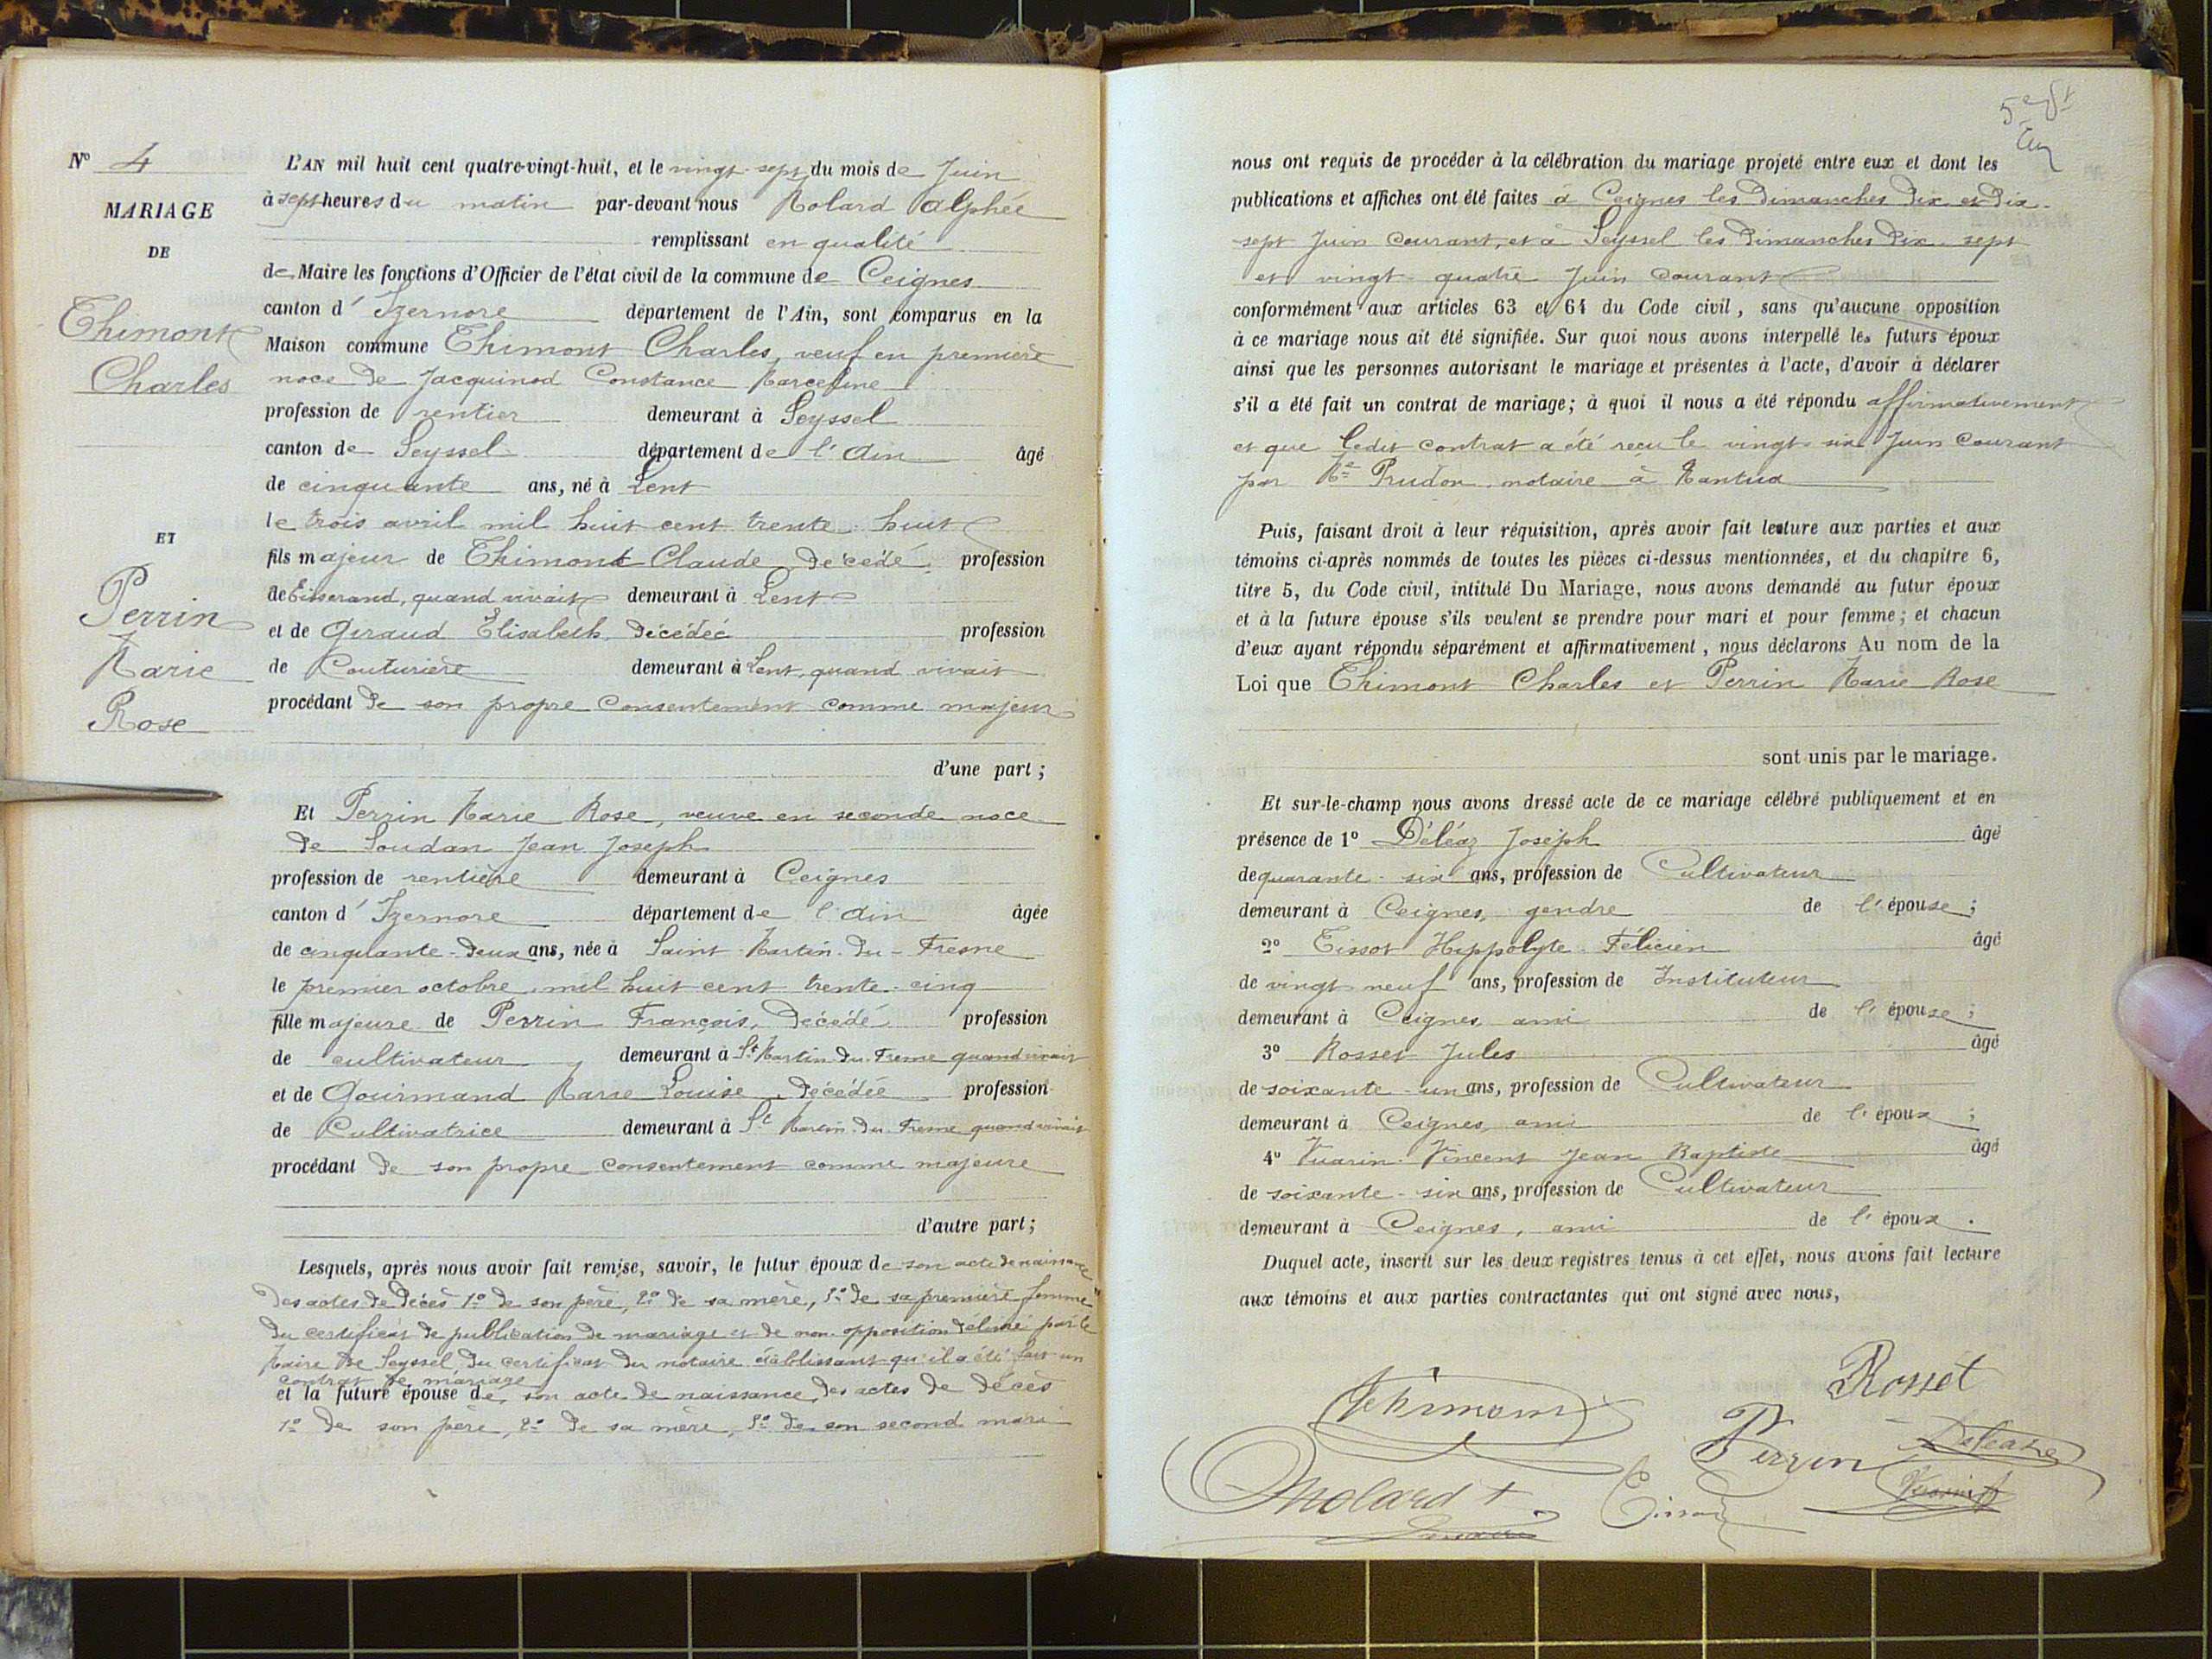 N° 4
MARIAGE
DE
Thimont
Charles
ET
Perrin
Marie
Rose
L'AN mil huit cent quatre-vingt-huit, et le vingt-sept du mois de Juin
à sept heures du matin par-devant nous Molard Alphée
remplissant en qualité
de Maire les fonctions d'Officier de l'état civil de la commune de Ceignes
canton d'Izernore département de l'Ain, sont comparus en la
Maison commune Thimont Charles, veuf en première
noce de Jacquinod Constance Marceline
profession de rentier demeurant à Seyssel
canton de Seyssel département de l'Ain âgé
de cinquante ans, né à Lent
le trois avril mil huit cent trente-huit
fils majeur de Thimont Claude, décédé, profession
de Tisserand, quand vivait demeurant à Lent
et de Giraud Elisabeth, décédée profession
de Couturière demeurant à Lent, quand vivait
procédant de son propre consentement comme majeur
d'une part;
Et Perrin Marie Rose, veuve en seconde noce
de Soudan Jean Joseph
profession de rentière demeurant à Ceignes
canton d'Izernore département de l'Ain âgée
de cinquante-deux ans, née à Saint-Martin-du-Fresne
le premier octobre mil huit cent trente-cinq
fille majeure de Perrin François, décédé profession
de cultivateur demeurant à St Martin-du-Fresne quand vivait
et de Gourmand Marie Louise, décédée profession
de Cultivatrice demeurant à St Martin-du-Fresne quand vivait
procédant de son propre consentement comme majeure
d'autre part;
Lesquels, après nous avoir fait remise, savoir, le futur époux de son acte de naissance
des actes de décès 1° de son père, 2° de sa mère, 3° de sa première femme
du certificat de publication de mariage et de non opposition délivré par le
Maire de Seyssel, du certificat du notaire établissant qu'il a été fait un
contrat de mariage
et la future épouse de son acte de naissance, des actes de décès
1° de son père, 2° de sa mère, 3° de son second mari
nous ont requis de procéder à la célébration du mariage projeté entre eux et dont les
publications et affiches ont été faites à Ceignes les Dimanches dix et dix-
sept Juin courant, et à Seyssel les Dimanches dix-sept
et vingt-quatre Juin courant
conformément aux articles 63 et 64 du Code civil, sans qu'aucune opposition
à ce mariage nous ait été signifiée. Sur quoi nous avons interpellé les futurs époux
ainsi que les personnes autorisant le mariage et présentes à l'acte, d'avoir à déclarer
s'il a été fait un contrat de mariage; à quoi il nous a été répondu affirmativement
et que ledit contrat a été reçu le vingt-six Juin courant
par Me Prudon, notaire à Nantua
Puis, faisant droit à leur réquisition, après avoir fait lecture aux parties et aux
témoins ci-après nommés de toutes les pièces ci-dessus mentionnées, et du chapitre 6,
titre 5, du Code civil, intitulé Du Mariage, nous avons demandé au futur époux
et à la future épouse s'ils veulent se prendre pour mari et pour femme; et chacun
d'eux ayant répondu séparément et affirmativement, nous déclarons Au nom de la
Loi que Thimont Charles et Perrin Marie Rose
sont unis par le mariage.
Et sur-le-champ nous avons dressé acte de ce mariage célébré publiquement et en
présence de 1° Déléaz Joseph âgé
de quarante-six ans, profession de Cultivateur
demeurant à Ceignes, gendre de l'épouse;
2° Tissot Hippolyte Félicien âgé
de vingt neuf ans, profession de Instituteur
demeurant à Ceignes, ami de l'épouse;
3° Rosset Jules âgé
de soixante-un ans, profession de Cultivateur
demeurant à Ceignes, ami de l'époux;
4° Vuarin Vincent Jean Baptiste âgé
de soixante-six ans, profession de Cultivateur
demeurant à Ceignes, ami de l'époux.
Duquel acte, inscrit sur les deux registres tenus à cet effet, nous avons fait lecture
aux témoins et aux parties contractantes qui ont signé avec nous,
Rosset
Thimont
Perrin
Déléaz
Molard
Tissot